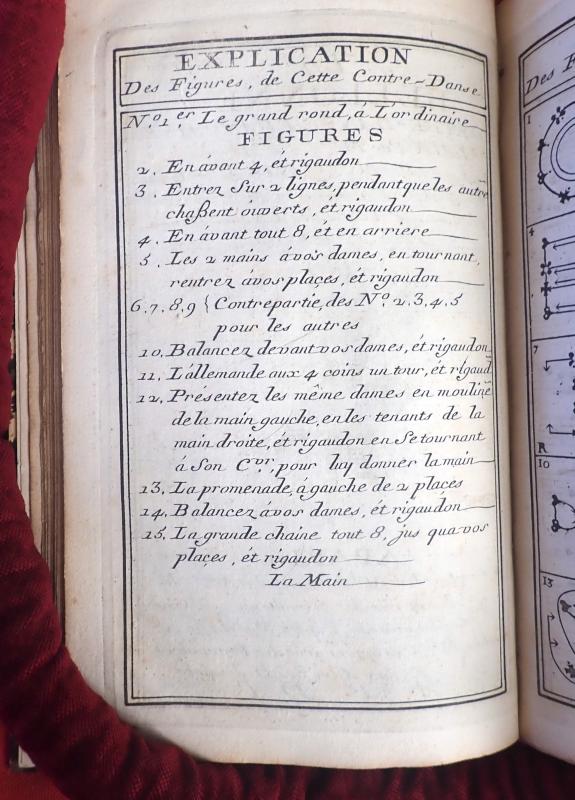 EXPLICATION
Des Figures, de Cette Contre-Danse
N.º 1.er Le grand rond, á L'ordinaire
FIGURES
2. En ávant 4, ét rigaudon
3. Entrez Sur 2 lignes, pendant que les autr̃e
chaßent óuverts, ét rigaudon
4. En ávant tout 8, ét en arriere
5. Les 2 mains á vos dames, en tournant,
rentrez ávos plaçes, ét rigaudon
6.7.8.9 { Contrepartie, des Nº 2.3.4.5
pour les autres
10. Balancez devant vos dames, ét rigaudon
11. L'állemande aux 4 coins un tour, ét rigaud
12. Présentez les même dames en mouline
de la main gauche, en les tenants de la
main droite, ét rigaudon en Se tournant
á Son Cvr, pour luy donner la main
13. La promenade, á gauche de 2 places
14. Balancez ávos dames, ét rigaudon
15. La grande chaine tout 8, jus qua vos
plaçes, ét rigaudon
La Main
Des F
1
4
7
R
10
13